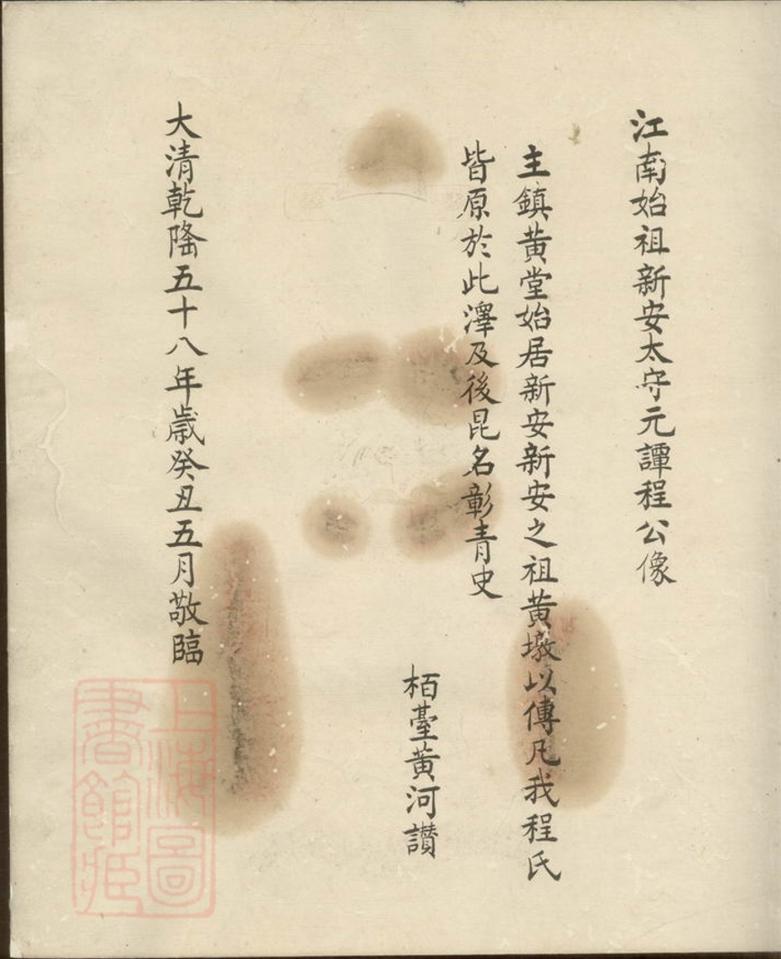 江南始祖新安太守元譚程公像
主鎮黄堂始居新安新安之祖黄墩以傳凡我程氏
皆原於此澤及後昆名彰青史
栢臺黄河讃
大清乾隆五十八年歳癸丑五月敬臨
上海圖
書館藏